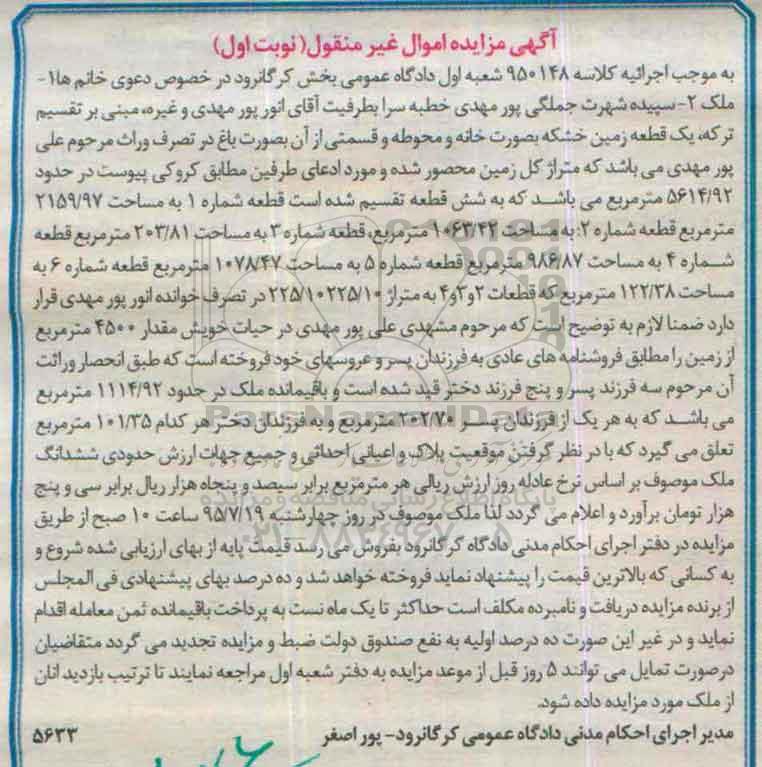 آگهی مزایده اموال غیر منقول (نوبت اول)
به موجب اجرائیه کلاسه ۹۵۰۱۴۸ شعبه اول دادگاه عمومی بخش کرگانرود در خصوص دعوی خانم ها ۱-
ملک ۲- سپیده شهرت جملگی پور مهدی خطبه سرا بطرفیت آقای انور پور مهدی و غیره، مبنی بر تقسیم
ترکه، یک قطعه زمین خشکه بصورت خانه و محوطه و قسمتی از آن بصورت باغ در تصرف وراث مرحوم علی
پور مهدی می باشد که متراژ کل زمین محصور شده و مورد ادعای طرفین مطابق کروکی پیوست در حدود
۵۶۱۴/۹۲ مترمربع می باشد که به شش قطعه تقسیم شده است قطعه شماره ۱ به مساحت ۲۱۵۹/۹۷
مترمربع قطعه شماره ۲: به مساحت ۱۰۶۳/۴۲ مترمربع، قطعه شماره ۳ به مساحت ۲۰۳/۸۱ مترمربع قطعه
شماره ۴ به مساحت ۹۸۶/۸۷ مترمربع قطعه شماره ۵ به مساحت ۱۰۷۸/۴۷ مترمربع قطعه شماره ۶ به
مساحت ۱۲۲/۳۸ مترمربع که قطعات ۲و۳و۴ به متراژ ۲۲۵/۱۰۲۲۵/۱۰ در تصرف خوانده انور پور مهدی قرار
دارد ضمنا لازم به توضیح است که مرحوم مشهدی علی پور مهدی در حیات خویش مقدار ۴۵۰۰ مترمربع
از زمین را مطابق فروشنامه های عادی به فرزندان پسر و عروسهای خود فروخته است که طبق انحصار وراثت
آن مرحوم سه فرزند پسر و پنج فرزند دختر قید شده است و باقیمانده ملک در حدود ۱۱۱۴/۹۲ مترمربع
می باشد که به هر یک از فرزندان پسر ۲۰۲/۷۰ مترمربع و به فرزندان دختر هر کدام ۱۰۱/۳۵ مترمربع
تعلق می گیرد که با در نظر گرفتن موقعیت پلاک و اعیانی احداثی و جمیع جهات ارزش حدودی ششدانگ
ملک موصوف بر اساس نرخ عادله روز ارزش ریالی هر مترمربع برابر سیصد و پنجاه هزار ریال برابر سی و پنج
هزار تومان برآورد و اعلام می گردد لذا ملک موصوف در روز چهارشنبه ۹۵/۷/۱۹ ساعت ۱۰ صبح از طریق
مزایده در دفتر اجرای احکام مدنی دادگاه کرگانرود بفروش می رسد قیمت پایه از بهای ارزیابی شده شروع و
به کسانی که بالاترین قیمت را پیشنهاد نماید فروخته خواهد شد و ده درصد بهای پیشنهادی فی المجلس
از برنده مزایده دریافت و نامبرده مکلف است حداکثر تا یک ماه نست به پرداخت باقیمانده ثمن معامله اقدام
نماید و در غیر این صورت ده درصد اولیه به نفع صندوق دولت ضبط و مزایده تجدید می گردد متقاضیان
درصورت تمایل می توانند ۵ روز قبل از موعد مزایده به دفتر شعبه اول مراجعه نمایند تا ترتیب بازدید انان
از ملک مورد مزایده داده شود.
مدیر اجرای احکام مدنی دادگاه عمومی کرگانرود- پور اصغر ۵۶۳۳
ParsNamadData
پایگاه اطلاع رسانی مناقصه و مزایده